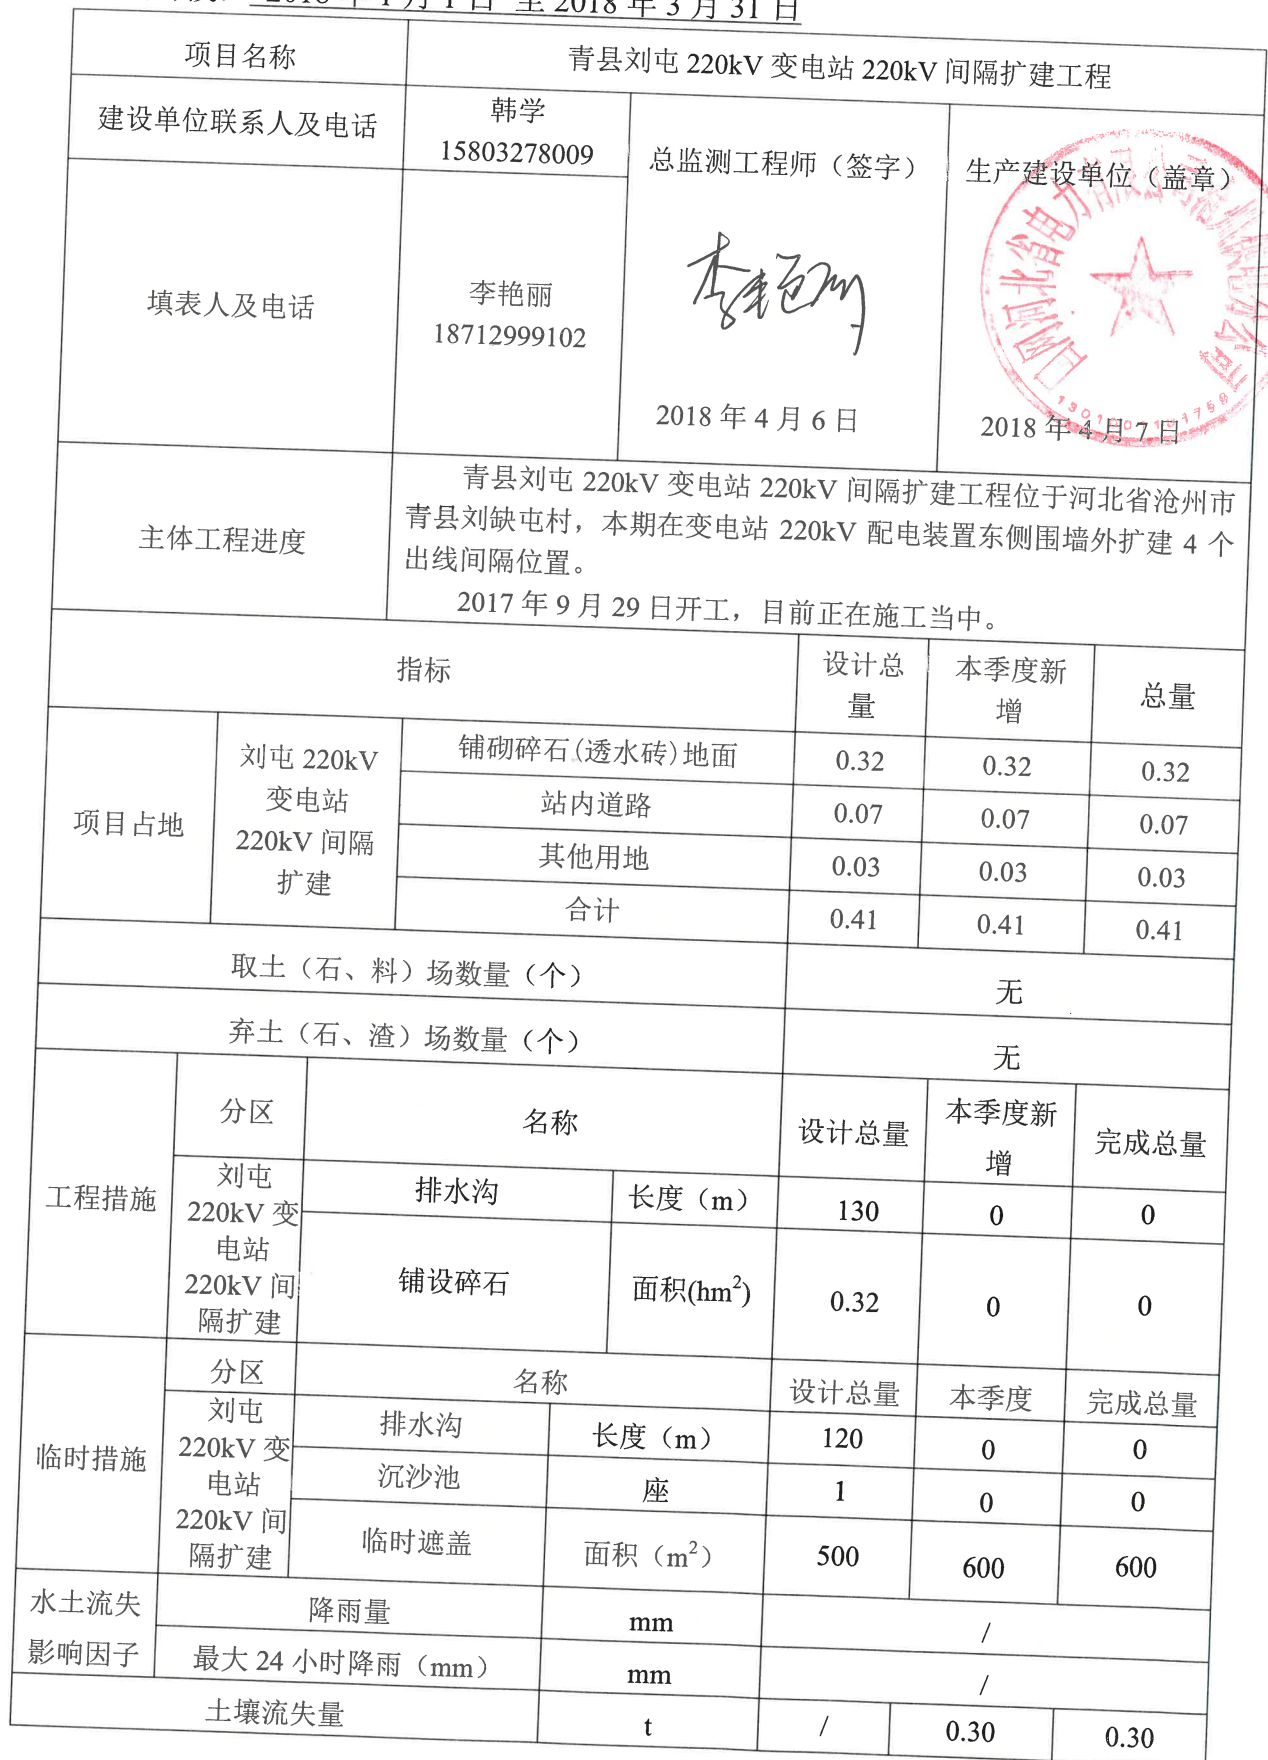 2018 年 1 月 1 日 至 2018 年 3 月 31 日
项目名称
青县刘屯 220kV 变电站 220kV 间隔扩建工程
建设单位联系人及电话
韩学
15803278009
总监测工程师（签字）
生产建设单位（盖章）
填表人及电话
李艳丽
18712999102
李艳丽
2018 年 4 月 6 日
国网河北省电力有限公司沧州供电分公司
2018 年 4 月 7 日
主体工程进度
青县刘屯 220kV 变电站 220kV 间隔扩建工程位于河北省沧州市
青县刘缺屯村，本期在变电站 220kV 配电装置东侧围墙外扩建 4 个
出线间隔位置。
2017 年 9 月 29 日开工，目前正在施工当中。
指标
设计总
量
本季度新
增
总量
项目占地
刘屯 220kV
变电站
220kV 间隔
扩建
铺砌碎石(透水砖)地面
0.32
0.32
0.32
站内道路
0.07
0.07
0.07
其他用地
0.03
0.03
0.03
合计
0.41
0.41
0.41
取土（石、料）场数量（个）
无
弃土（石、渣）场数量（个）
无
工程措施
分区
名称
设计总量
本季度新
增
完成总量
刘屯
220kV 变
电站
220kV 间
隔扩建
排水沟
长度（m）
130
0
0
铺设碎石
面积(hm²)
0.32
0
0
临时措施
分区
名称
设计总量
本季度
完成总量
刘屯
220kV 变
电站
220kV 间
隔扩建
排水沟
长度（m）
120
0
0
沉沙池
座
1
0
0
临时遮盖
面积（m²）
500
600
600
水土流失
影响因子
降雨量
mm
/
最大 24 小时降雨（mm）
mm
/
土壤流失量
t
/
0.30
0.30